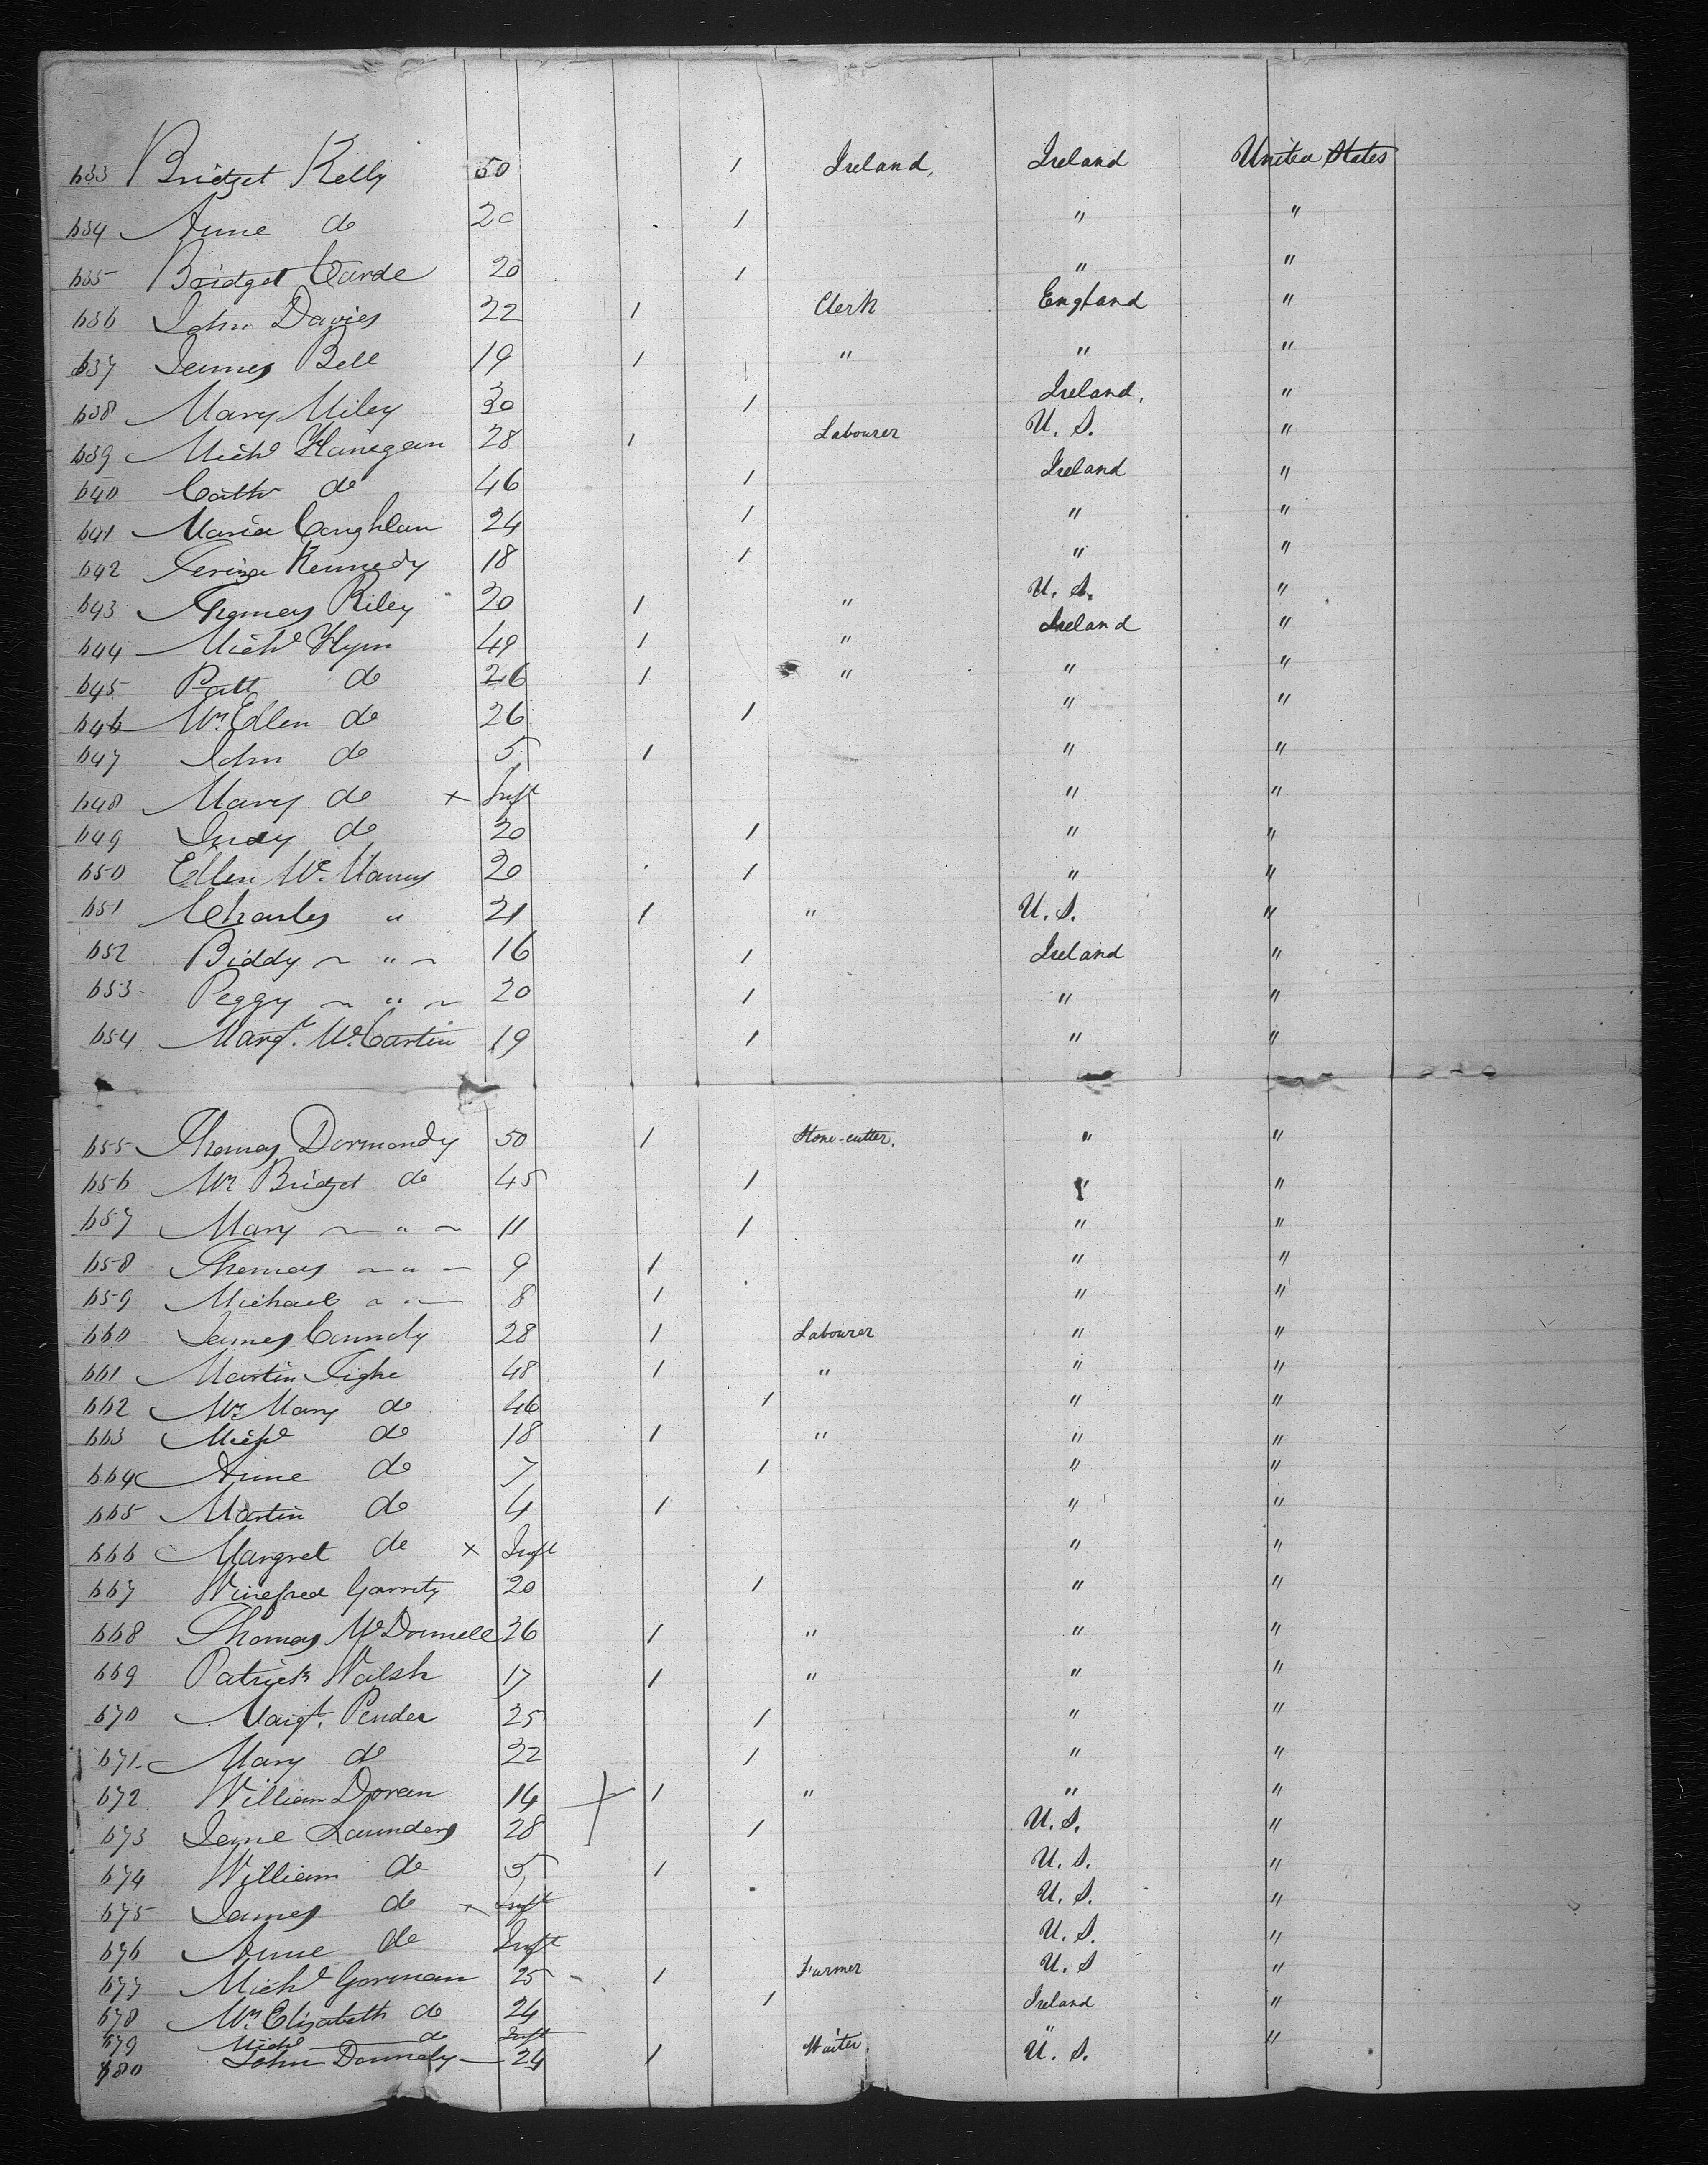 633 Bridget Kelly 50 1 Ireland, Ireland United States
634 Anne do 20 1 " "
635 Bridget Carde 20 1 " "
636 John Davies 22 1 Clerk England "
637 James Bell 19 1 " " "
638 Mary Miley 30 1 Ireland, "
639 Michl Flanegan 28 1 Labourer U. S. "
640 Cathr do 46 1 Ireland "
641 Maria Coughlan 24 1 " "
642 Kennedy 18 1 " "
643 Thomas Riley 20 1 " U. S. "
644 Michl Flynn 49 1 " Ireland "
645 Patt do 26 1 " " "
646 Mrs Ellen do 26 1 " "
647 John do 5 1 " "
648 Mary do x Inft " "
649 Judy do 20 1 " "
650 Ellen McManus 20 1 " "
651 Charles " 21 1 " U. S. "
652 Biddy ~ " ~ 16 1 Ireland "
653 Peggy ~ " ~ 20 1 " "
654 Margt. McCartin 19 1 " "
655 Thomas Dormondy 50 1 Stone-cutter. " "
656 Mrs Bridget do 45 1 " "
657 Mary ~ " ~ 11 1 " "
658 Thomas ~ " ~ 9 1 " "
659 Michael ~ " ~ 8 1 " "
660 James Connoly 28 1 Labourer " "
661 Martin Tighe 48 1 " " "
662 Mrs Mary do 46 1 " "
663 Michl do 18 1 " " "
664 Anne do 7 1 " "
665 Martin do 4 1 " "
666 Margret do x Inft " "
667 Winefred Garrity 20 1 " "
668 Thomas McDonnell 26 1 " " "
669 Patrick Walsh 17 1 " " "
670 Margt. Pender 25 1 " "
671 Mary do 22 1 " "
672 William Doran 14 1 " " "
673 Jane Saunders 28 1 U. S. "
674 William do 5 1 U. S. "
675 James do x Inft U. S. "
676 Anne do Inft U. S. "
677 Michl Gorman 25 1 Farmer U. S "
678 Mrs Elizabeth do 24 1 Ireland "
679 Michl do Inft " "
680 John Donnaly 24 1 Waiter U. S.